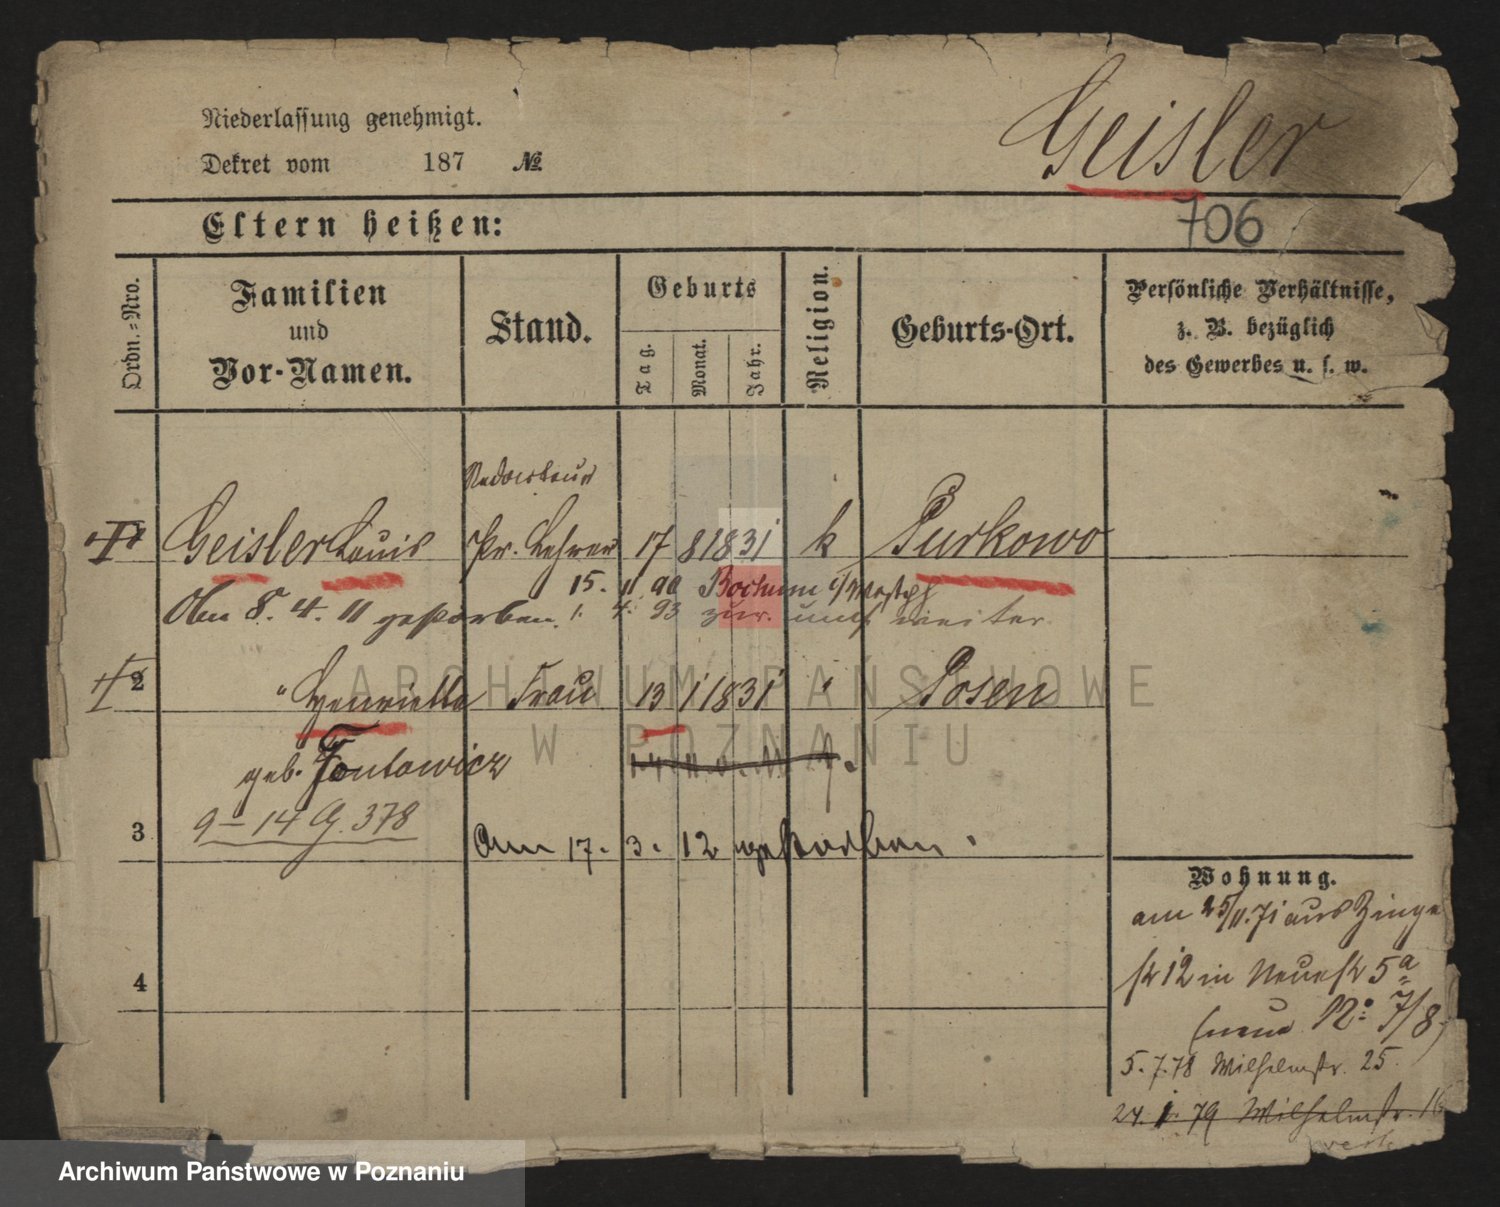 Niederlassung genehmigt.
Dekret vom 187 №
Geisler
706
Eltern heißen:
Ordn.=Nro.
Familien
und
Vor-Namen.
Stand.
Geburts
Tag.
Monat.
Jahr.
Religion.
Geburts-Ort.
Persönliche Verhältnisse,
z. B. bezüglich
des Gewerbes u. s. w.
Redacteur
Geisler Louis Pr. Lehrer 17 8 1831 k Purkowo
15. 11 90 Bochum i/Westph
Am 8. 4. 11 gestorben. 1. 4. 93 zur. und weiter
2 " Henriette Frau 13 1 1831 " Posen
geb. Fontowicz
9 – 14 G. 378
3 Am 17. 3. 12 gestorben.
4
Wohnung.
am 25/11.71 aus Zinge
str 12 in Neuestr 5a
(neue No: 7/8)
5.7.78 Wilhelmstr. 25.
24. 1. 79 Wilhelmstr. 16
ARCHIWUM PAŃSTWOWE
W POZNANIU
Archiwum Państwowe w Poznaniu